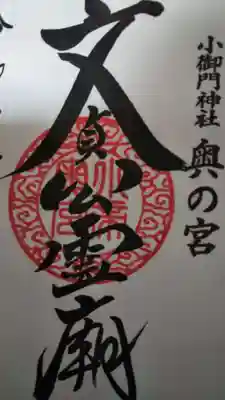 小御門神社
奥の宮
文貞公霊廟